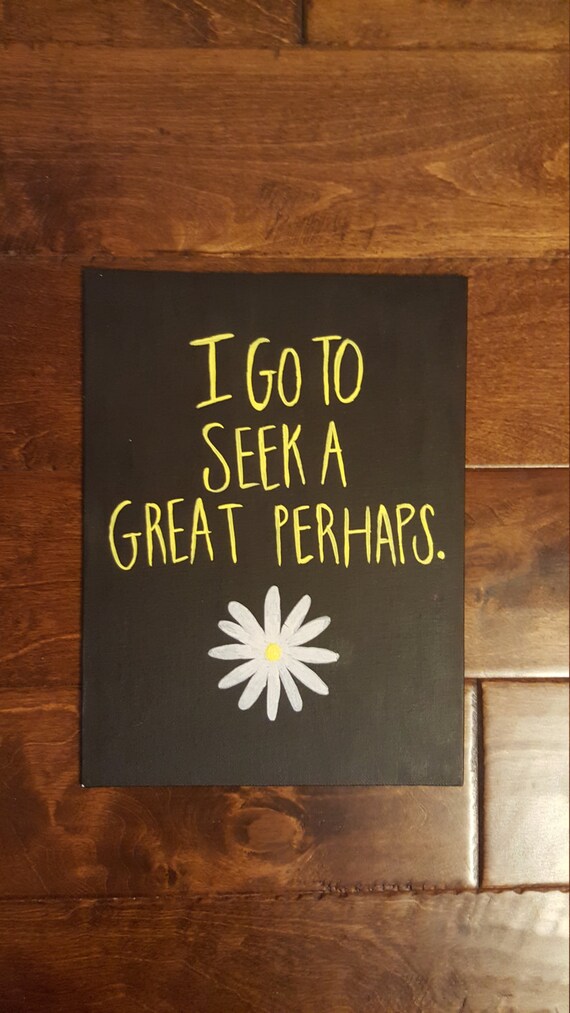 I GO TO
SEEK A
GREAT PERHAPS.